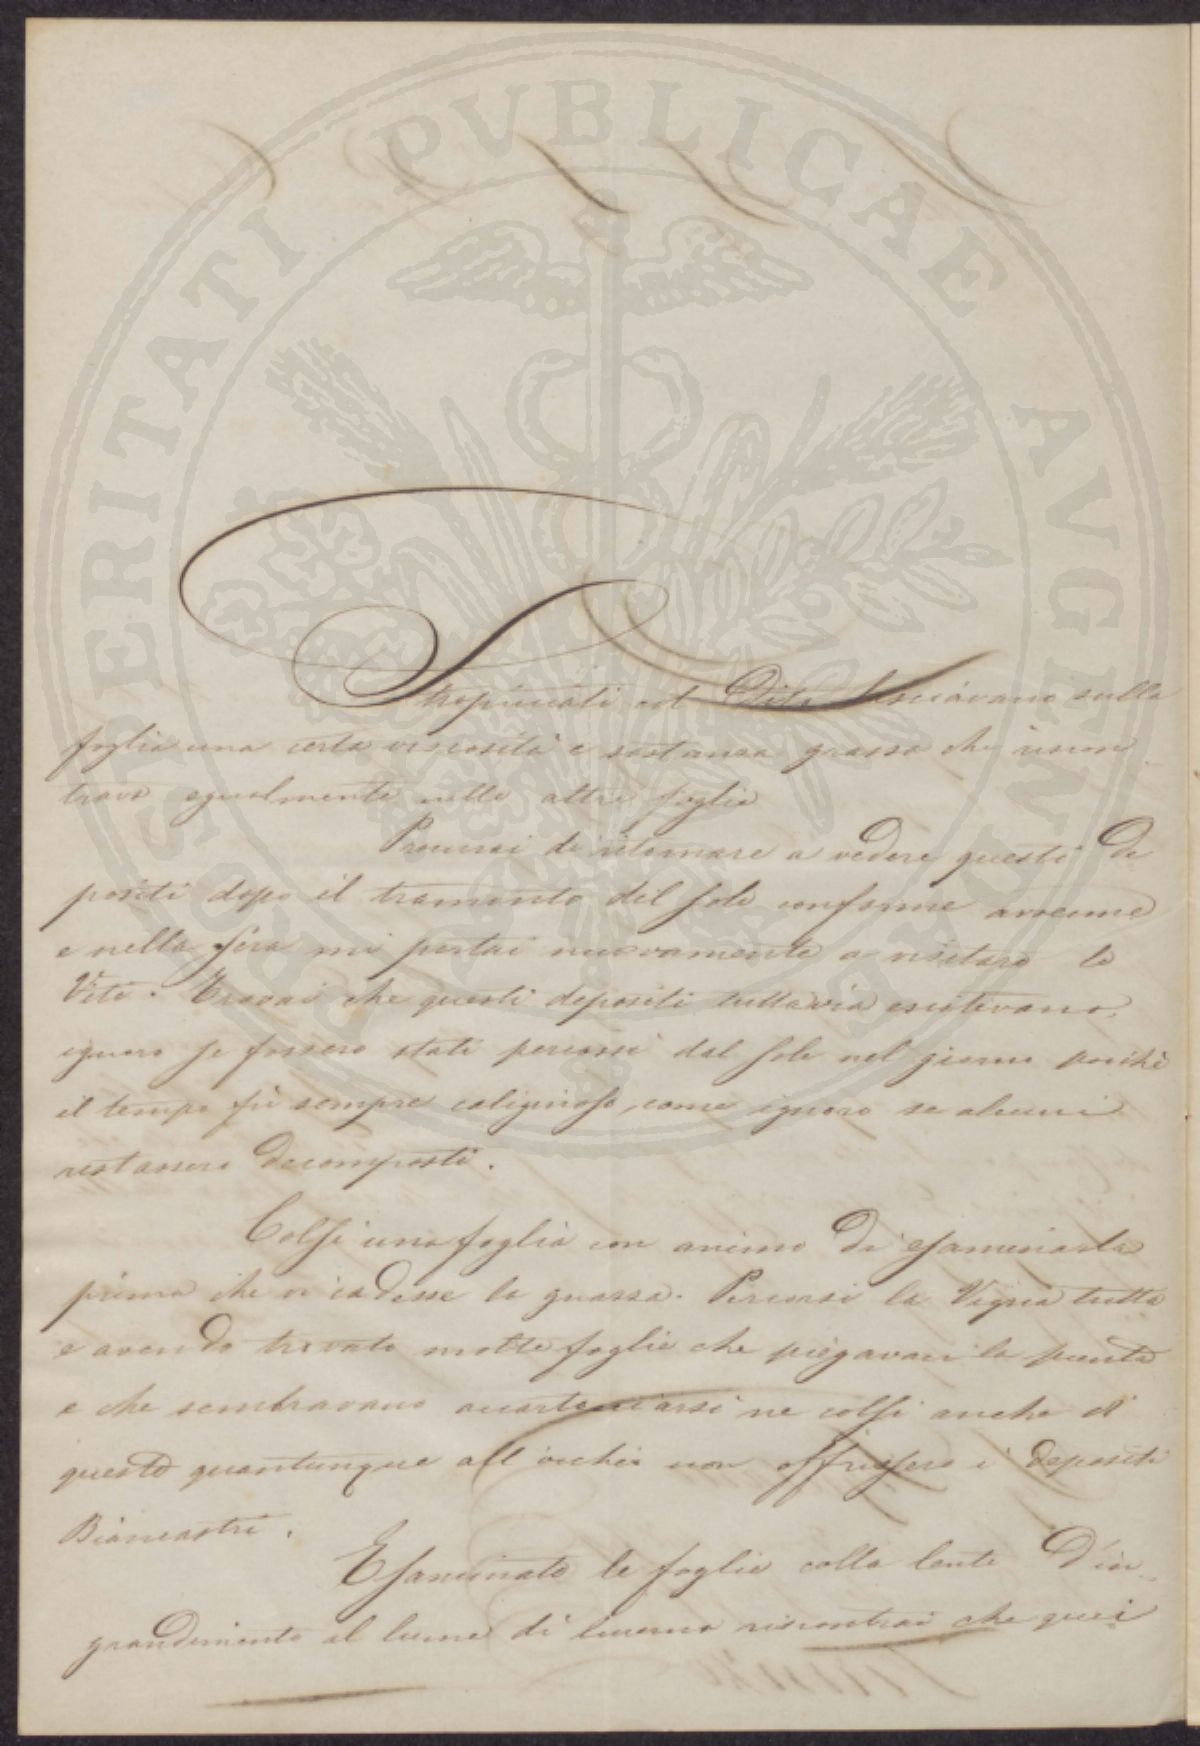 PROSPERITATI PVBLICAE AVGENDAE
Stropicciati col Dito lasciavano sulla
foglia una certa viscosità e sostanza grassa che riscon
travo egualmente nelle altre foglie
Procurai di ritornare a vedere questi De
positi dopo il tramonto del sole conforme avvenne
e nella sera mi portai nuovamente a visitare le
Viti. Trovai che questi depositi tuttavia esistevano,
ignoro se fossero stati percossi dal sole nel giorno poichè
il tempo fù sempre caliginoso, come ignoro se alcuni
restassero Decomposti.
Colsi una foglia con animo Di esaminarla
prima che vi cadesse la guazza. Percorsi la Vigna tutta
e avendo trovato molte foglie che piegavan la punta
e che sembravano accartocciarsi ne colsi anche di
queste quantunque all'occhio non offrissero i Depositi
Biancastri.
Esaminate le foglie colla lente D'in-
grandimento al lume di lucerna riscontrai che quei